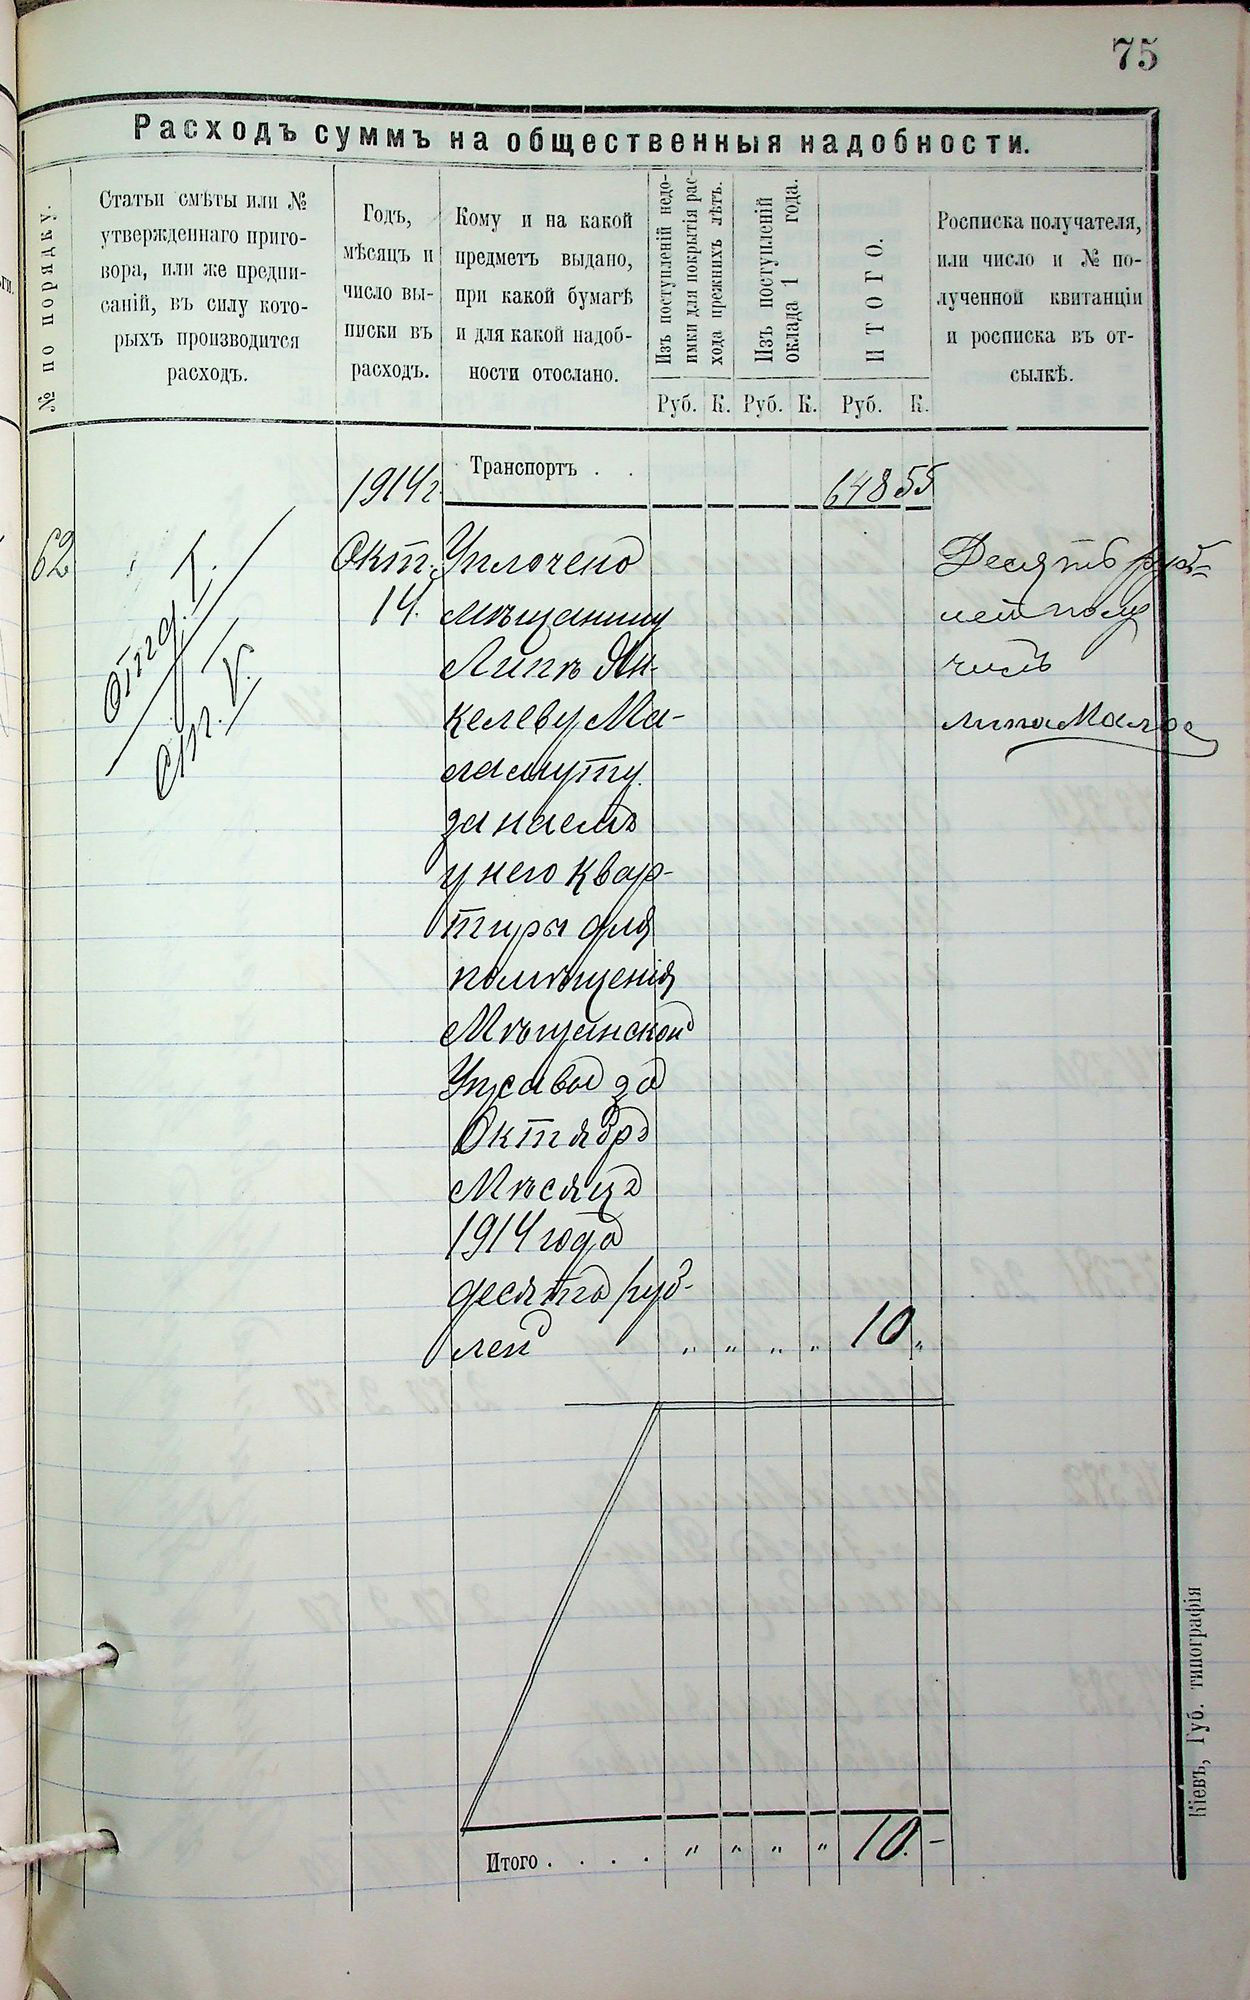 75
Расходъ суммъ на общественныя надобности.
№ по порядку.
Статьи смѣты или №
утвержденнаго приго-
вора, или же предпи-
саній, въ силу кото-
рыхъ производится
расходъ.
Годъ,
мѣсяцъ и
число вы-
писки въ
расходъ.
Кому и на какой
предметъ выдано,
при какой бумагѣ
и для какой надоб-
ности отослано.
Изъ поступленій недо-
имки для покрытія рас-
хода прежнихъ лѣтъ.
Изъ поступленій
оклада 1 года.
ИТОГО.
Росписка получателя,
или число и № по-
лученной квитанціи
и росписка въ от-
сылкѣ.
Руб. К. Руб. К. Руб. К.
1914 г. Транспортъ . . 648 55
62
Отд. I.
Ст. V.
Окт.
14.
Уплочено
мѣщанину
Липѣ Ян-
келеву Ма-
ламуту
за наемъ
у него квар-
тиры для
помѣщенія
Мѣщанской
Управы за
Октябрь
Мѣсяцъ
1914 года
десять руб-
лей „ „ „ „ 10 „
Десять руб-
лей полу
чилъ
Липа
Итого . . . . „ „ „ „ 10. –
Кіевъ, Губ. типографія